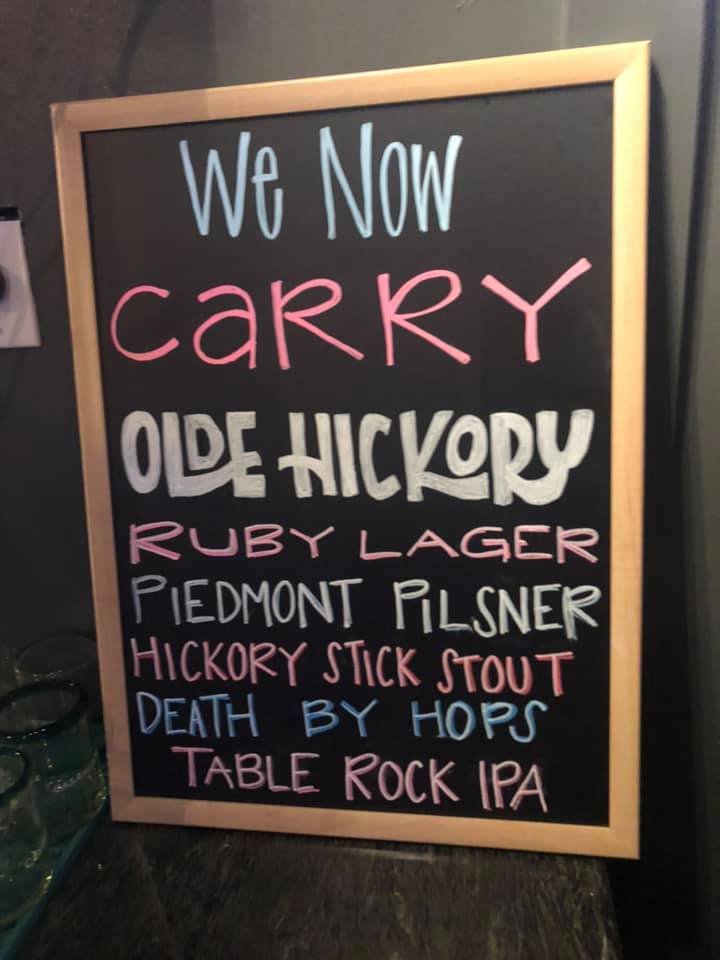 We Now
CaRRY
OLDE HICKORY
RUBY LAGER
PIEDMONT PILSNER
HICKORY STICK STOUT
DEATH BY HOPS
TABLE ROCK IPA